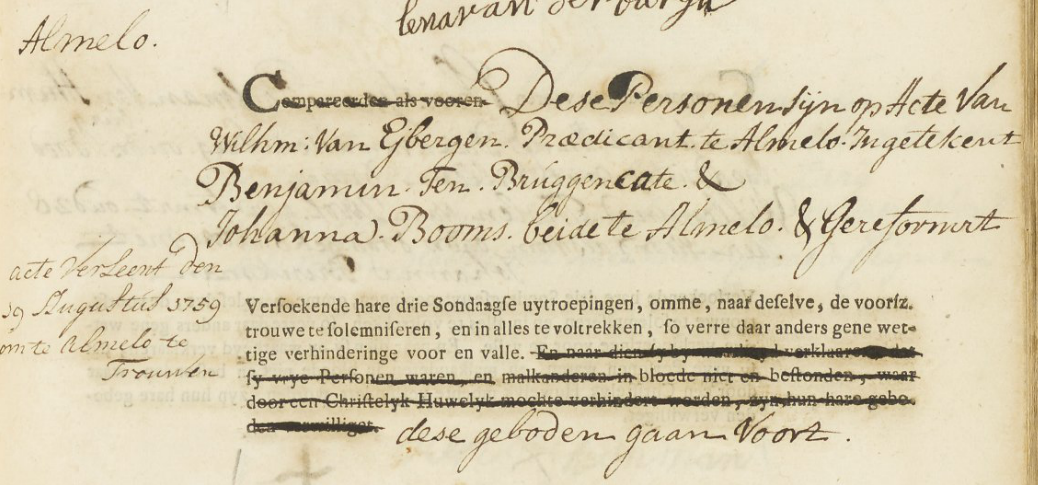 Almelo.
Compareerden als vooren Dese Personen sijn op Acte Van
Wilhm: Van Ejbergen. Prædicant. te Almelo. Ingetekent
Benjamin. Ten. Bruggencate. &
Johanna. Booms. beide te Almelo. & Gereformrt
acte Verleent den
19 Augustus 1759
om te Almelo te
Trouwen
Versoekende hare drie Sondaagse uytroepingen, omme, naar deselve, de voorsz.
trouwe te solemniseren, en in alles te voltrekken, so verre daar anders gene wet-
tige verhinderinge voor en valle. En naar dien sy by verklaaren dat
sy vrye Personen waren, en malkanderen in bloede niet en bestonden, waar
door een Christelyk Huwelyk mochte verhindert werden, zyn hun hare gebo-
den verwilliget. dese geboden gaan Voort.